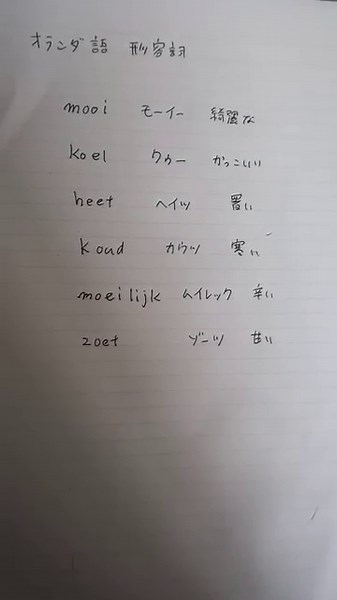 オランダ語 形容詞
mooi モーイー 綺麗な
koel クゥー かっこいい
heet ヘイツ 置い
koud カウツ 寒い
moeilijk ムイレック 辛い
zoet ゾーツ 甘い